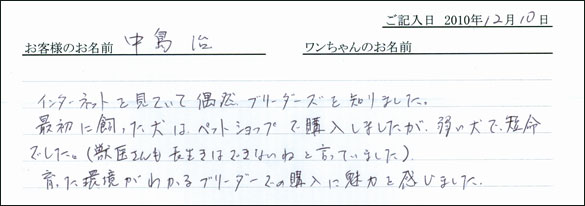 ご記入日 2010年12月10日
お客様のお名前 中島 治 ワンちゃんのお名前
インターネットを見ていて偶然ブリーダーズを知りました。
最初に飼った犬は、ペットショップで購入しましたが、弱い犬で、短命
でした。(獣医さんも長生きはできないねと言っていました)
育った環境がわかるブリーダーでの購入に魅力を感じました。